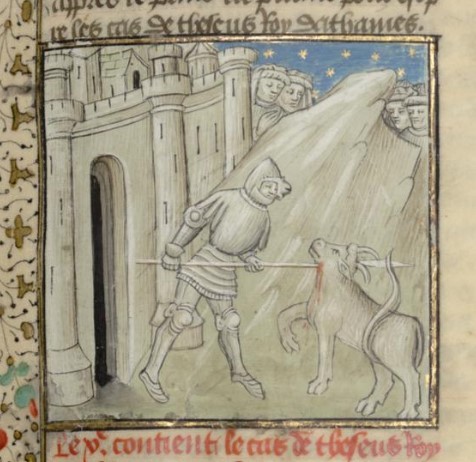 apres le
re ses cas de theseus Roy dathaines.
Le xe. contient le cas de theseus Roy